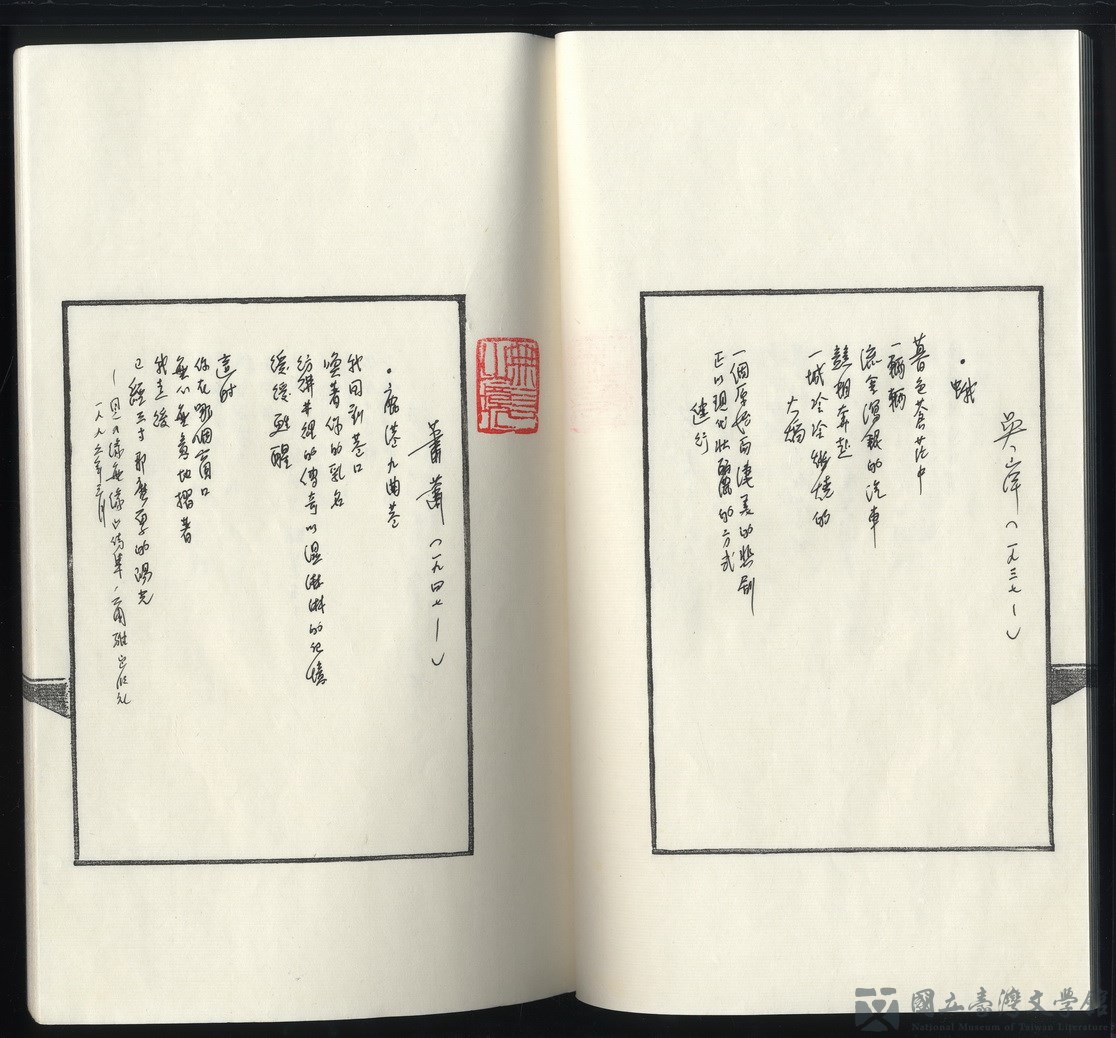 吳岸(一九三七—)
•蛾
暮色蒼茫中
一輛輛
流金瀉銀的汽車
競相奔赴
一城冷冷燃燒的
火燭
一個原始而淒美的悲劇
正以現代壯麗的方式
進行
蕭蕭(一九四七—)
•鹿港九曲巷
我回到巷口
喚著你的乳名
彷彿半掩的傳奇以濕淋淋的記憶
緩緩甦醒
這時
你在哪個窗口
無心無意地摺著
我走後
已經三寸那麼厚的陽光
—《緣無緣》詩集,爾雅出版社
一九九六年三月
國立臺灣文學館
National Museum of Taiwan Literature